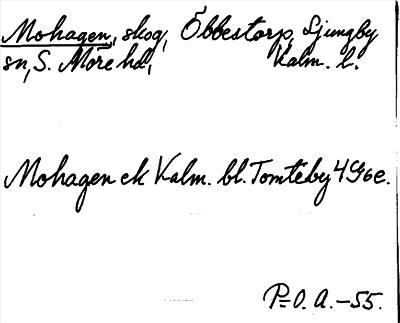 Mohagen, skog, Öbbestorp, Ljungby
sn, S. Möre hd, Kalm. l.
Mohagen ek Kalm. bl. Tomteby 4 G6e.
P-O. A. -55.